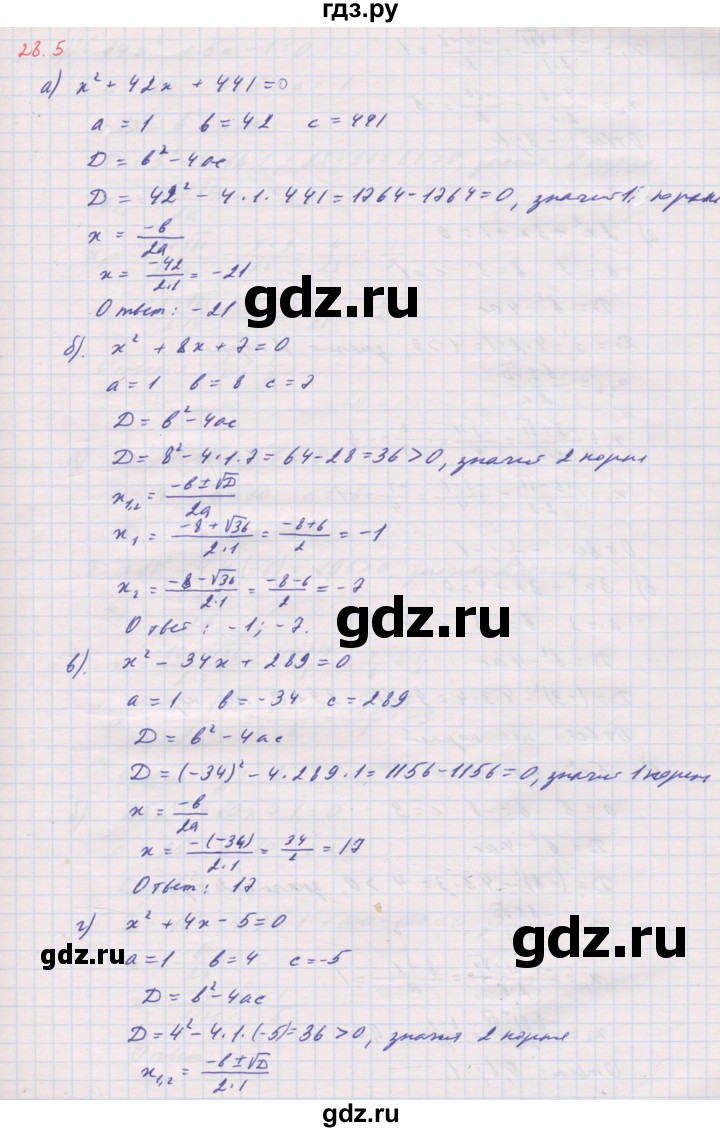 гдз.ру
28.5
а) x² + 42x + 441 = 0
a = 1 b = 42 c = 441
D = b² - 4ac
D = 42² - 4·1·441 = 1764 - 1764 = 0, значит 1 корень
x = -b/2a
x = -42/2·1 = -21
Ответ: -21
gdz.ru
б). x² + 8x + 7 = 0
a = 1 b = 8 c = 7
D = b² - 4ac
D = 8² - 4·1·7 = 64 - 28 = 36 > 0, значит 2 корня
x₁,₂ = -b ± √D/2a
x₁ = -8 + √36/2·1 = -8+6/2 = -1
x₂ = -8 - √36/2·1 = -8-6/2 = -7
gdz.ru
Ответ: -1; -7.
в). x² - 34x + 289 = 0
a = 1 b = -34 c = 289
D = b² - 4ac
D = (-34)² - 4·289·1 = 1156 - 1156 = 0, значит 1 корень
x = -b/2a
x = -(-34)/2·1 = 34/2 = 17
Ответ: 17
г) x² + 4x - 5 = 0
gdz.ru
gdz.ru
a = 1 b = 4 c = -5
D = b² - 4ac
D = 4² - 4·1·(-5) = 36 > 0, значит 2 корня
x₁,₂ = -b ± √D/2·1
gdz.ru